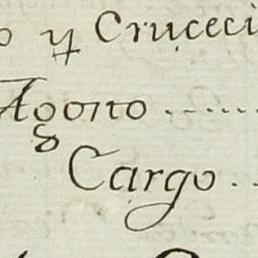 o y Cruceci
Agosto .....
Cargo ..